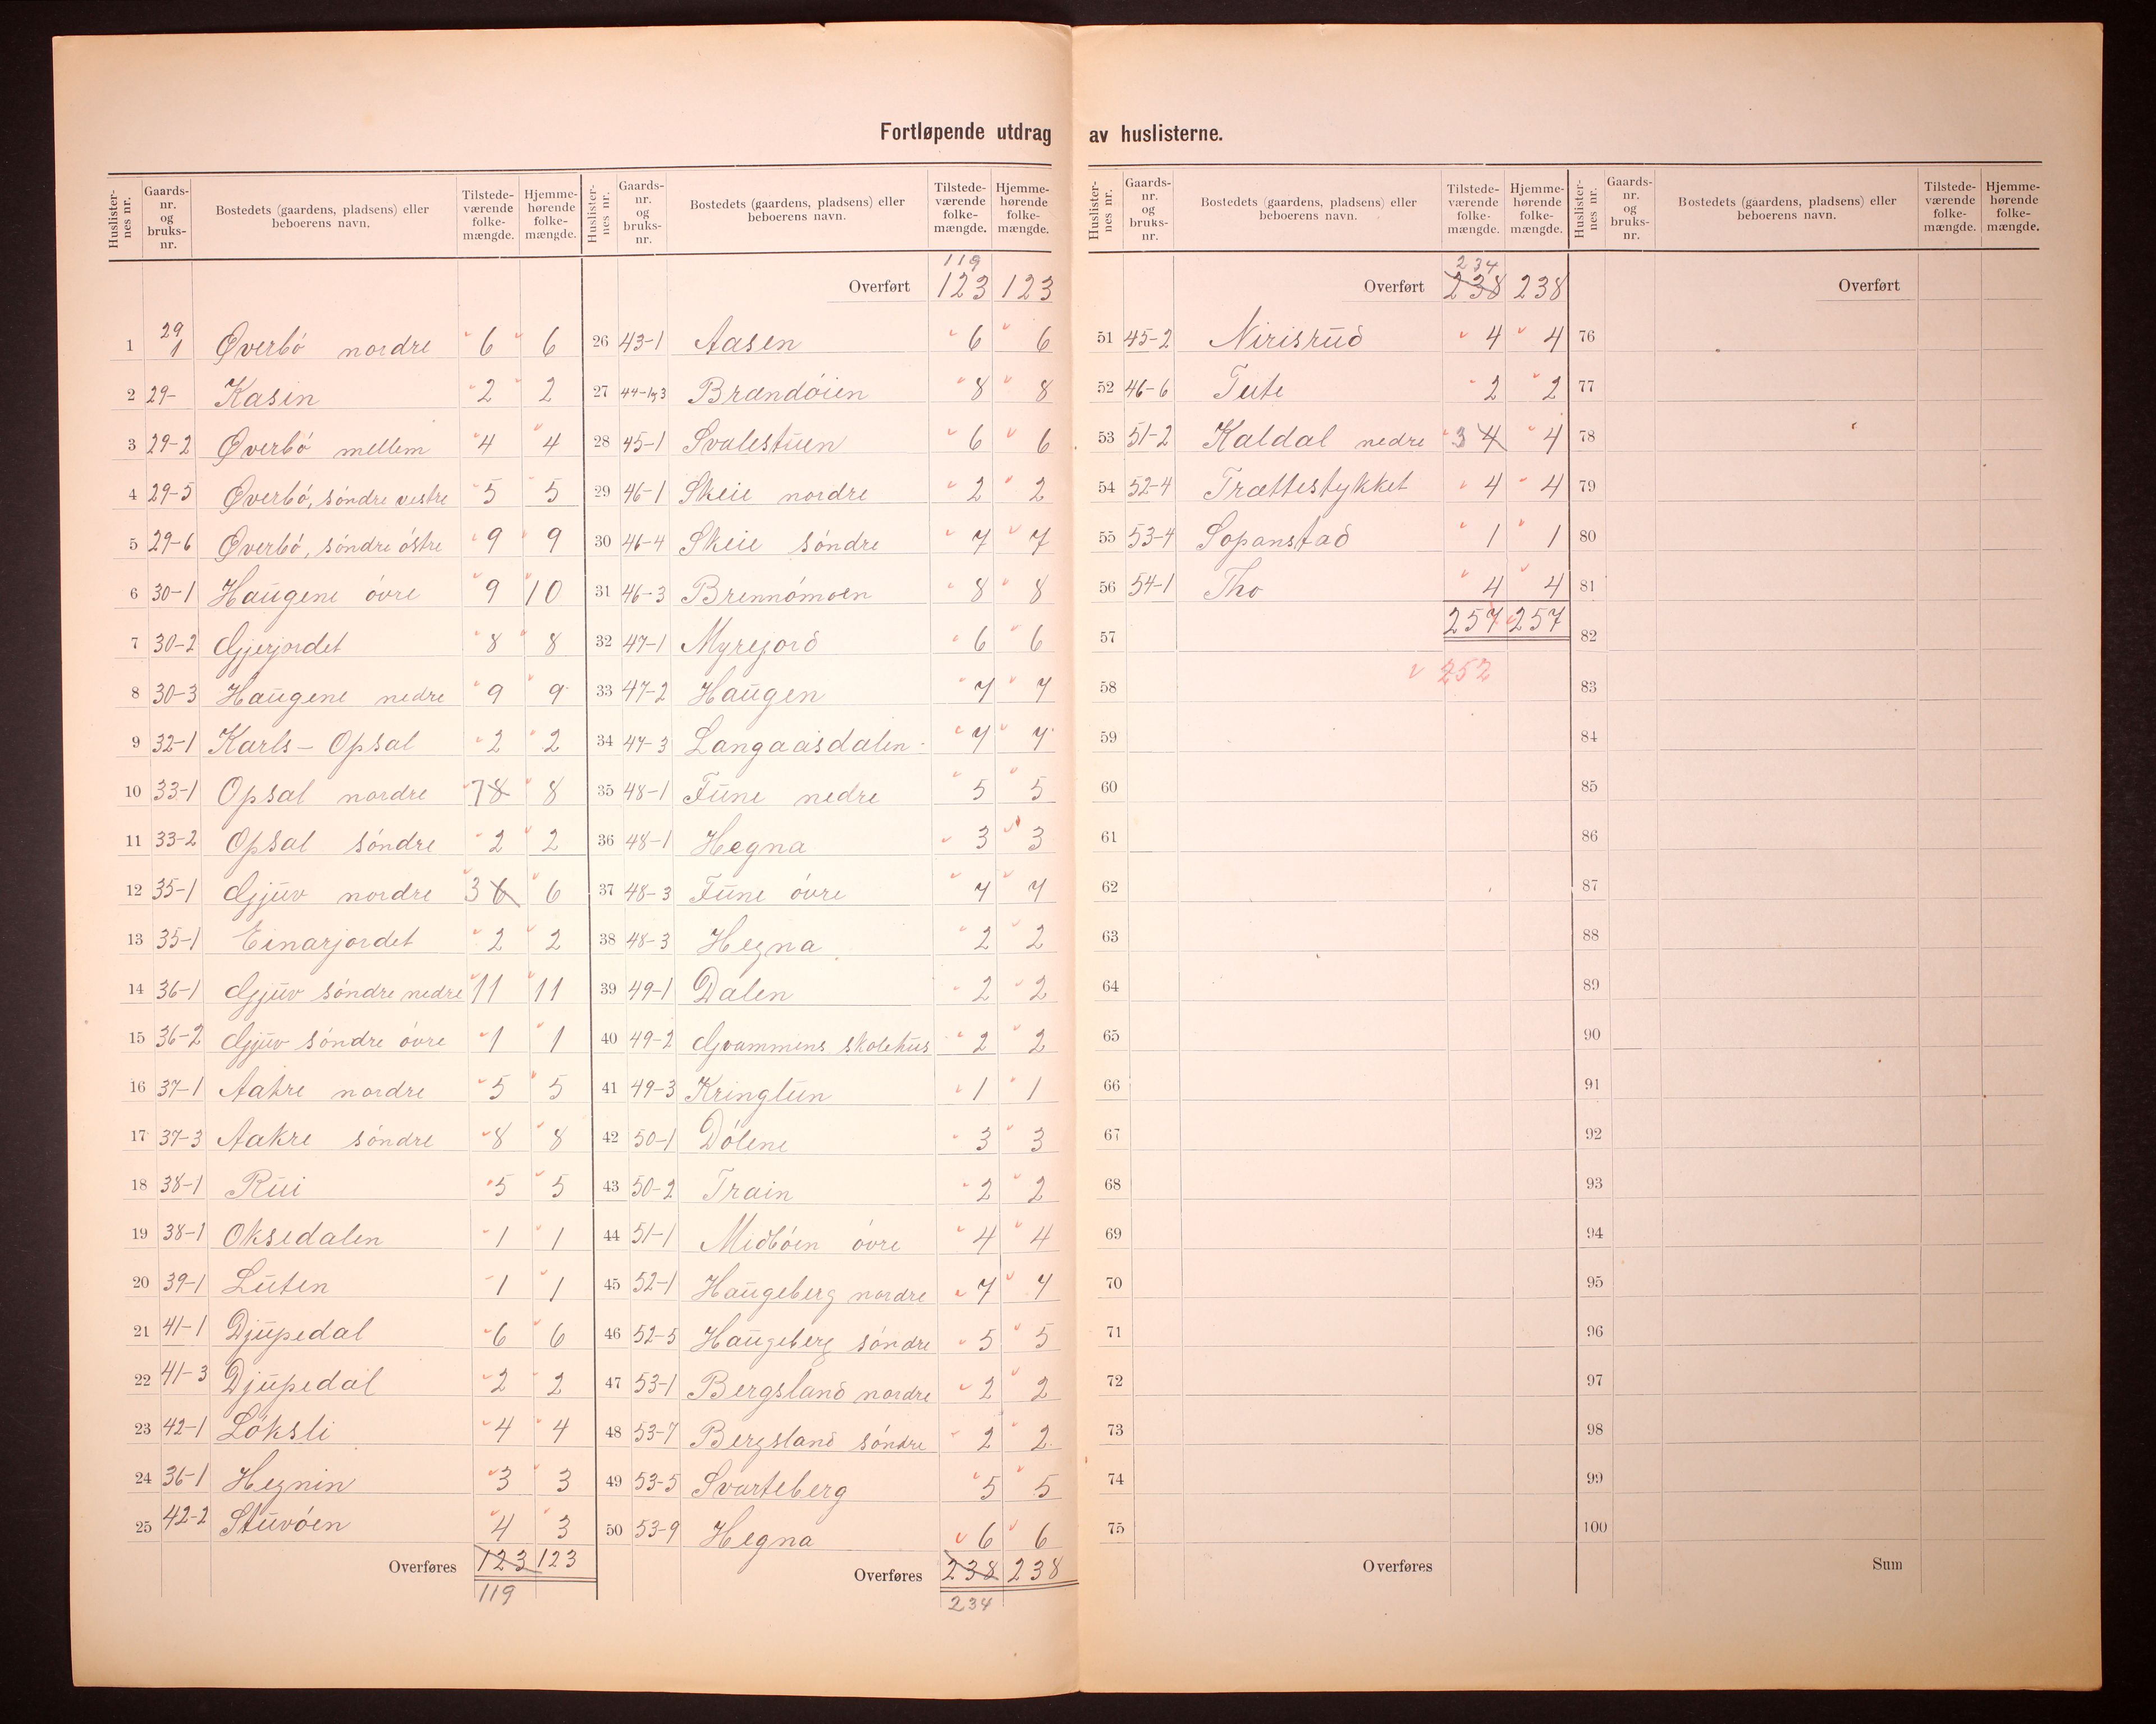 Fortløpende utdrag av huslisterne.
Huslisternes nr. | Gaardsnr. og bruksnr. | Bostedets (gaardens, pladsens) eller beboerens navn. | Tilstedeværende folkemængde. | Hjemmehørende folkemængde.
1 29 1 Øverbö nordre 6 6
2 29- Kasin 2 2
3 29-2 Øverbö mellem 4 4
4 29-5 Øverbö, söndre vestre 5 5
5 29-6 Øverbö, söndre östre 9 9
6 30-1 Haugene övre 9 10
7 30-2 Gjerjordet 8 8
8 30-3 Haugene nedre 9 9
9 32-1 Karls-Opsal 2 2
10 33-1 Opsal nordre 7 8 8
11 33-2 Opsal söndre 2 2
12 35-1 Gjuv nordre 3 6 6
13 35-1 Einarjordet 2 2
14 36-1 Gjuv söndre nedre 11 11
15 36-2 Gjuv söndre övre 1 1
16 37-1 Aakre nordre 5 5
17 37-3 Aakre söndre 8 8
18 38-1 Rui 5 5
19 38-1 Oksedalen 1 1
20 39-1 Luten 1 1
21 41-1 Djupedal 6 6
22 41-3 Djupedal 2 2
23 42-1 Löksli 4 4
24 36-1 Hegnin 3 3
25 42-2 Stuvöen 4 3
Overføres 123 123
119
Huslisternes nr. | Gaardsnr. og bruksnr. | Bostedets (gaardens, pladsens) eller beboerens navn. | Tilstedeværende folkemængde. | Hjemmehørende folkemængde.
119
Overført 123 123
26 43-1 Aasen 6 6
27 44-1,3 Brændöien 8 8
28 45-1 Svalestuen 6 6
29 46-1 Skeie nordre 2 2
30 46-4 Skeie söndre 7 7
31 46-3 Brennömoen 8 8
32 47-1 Myrejord 6 6
33 47-2 Haugen 7 7
34 47-3 Langaasdalen 7 7
35 48-1 Fune nedre 5 5
36 48-1 Hegna 3 3
37 48-3 Fune övre 7 7
38 48-3 Hegna 2 2
39 49-1 Dalen 2 2
40 49-2 Gvammens skolehus 2 2
41 49-3 Kringlun 1 1
42 50-1 Dölene 3 3
43 50-2 Train 2 2
44 51-1 Midböen övre 4 4
45 52-1 Haugeberg nordre 7 7
46 52-5 Haugeberg söndre 5 5
47 53-1 Bergsland nordre 2 2
48 53-7 Bergsland söndre 2 2
49 53-5 Svarteberg 5 5
50 53-9 Hegna 6 6
Overføres 238 238
234
Huslisternes nr. | Gaardsnr. og bruksnr. | Bostedets (gaardens, pladsens) eller beboerens navn. | Tilstedeværende folkemængde. | Hjemmehørende folkemængde.
234
Overført 238 238
51 45-2 Nirisrud 4 4
52 46-6 Tute 2 2
53 51-2 Kaldal nedre 3 4 4
54 52-4 Trættestykket 4 4
55 53-4 Sopanstad 1 1
56 54-1 Tho 4 4
57 257 257
58 252
59
60
61
62
63
64
65
66
67
68
69
70
71
72
73
74
75
Overføres
Huslisternes nr. | Gaardsnr. og bruksnr. | Bostedets (gaardens, pladsens) eller beboerens navn. | Tilstedeværende folkemængde. | Hjemmehørende folkemængde.
Overført
76
77
78
79
80
81
82
83
84
85
86
87
88
89
90
91
92
93
94
95
96
97
98
99
100
Sum